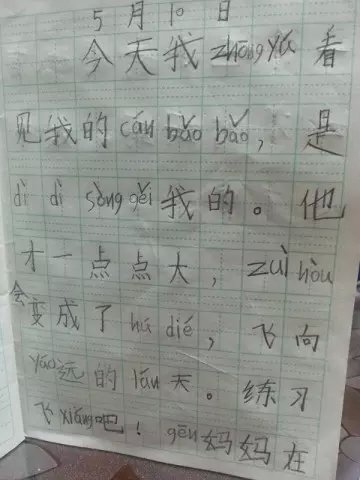 5月10日
今天我zhōng yú看
见我的cán bǎo bǎo，是
dì dì sòng gěi我的。他
才一点点大，zuì hòu
会变成了hú dié，飞向
yáo远的lán天。练习
飞xiáng吧！gēn妈妈在